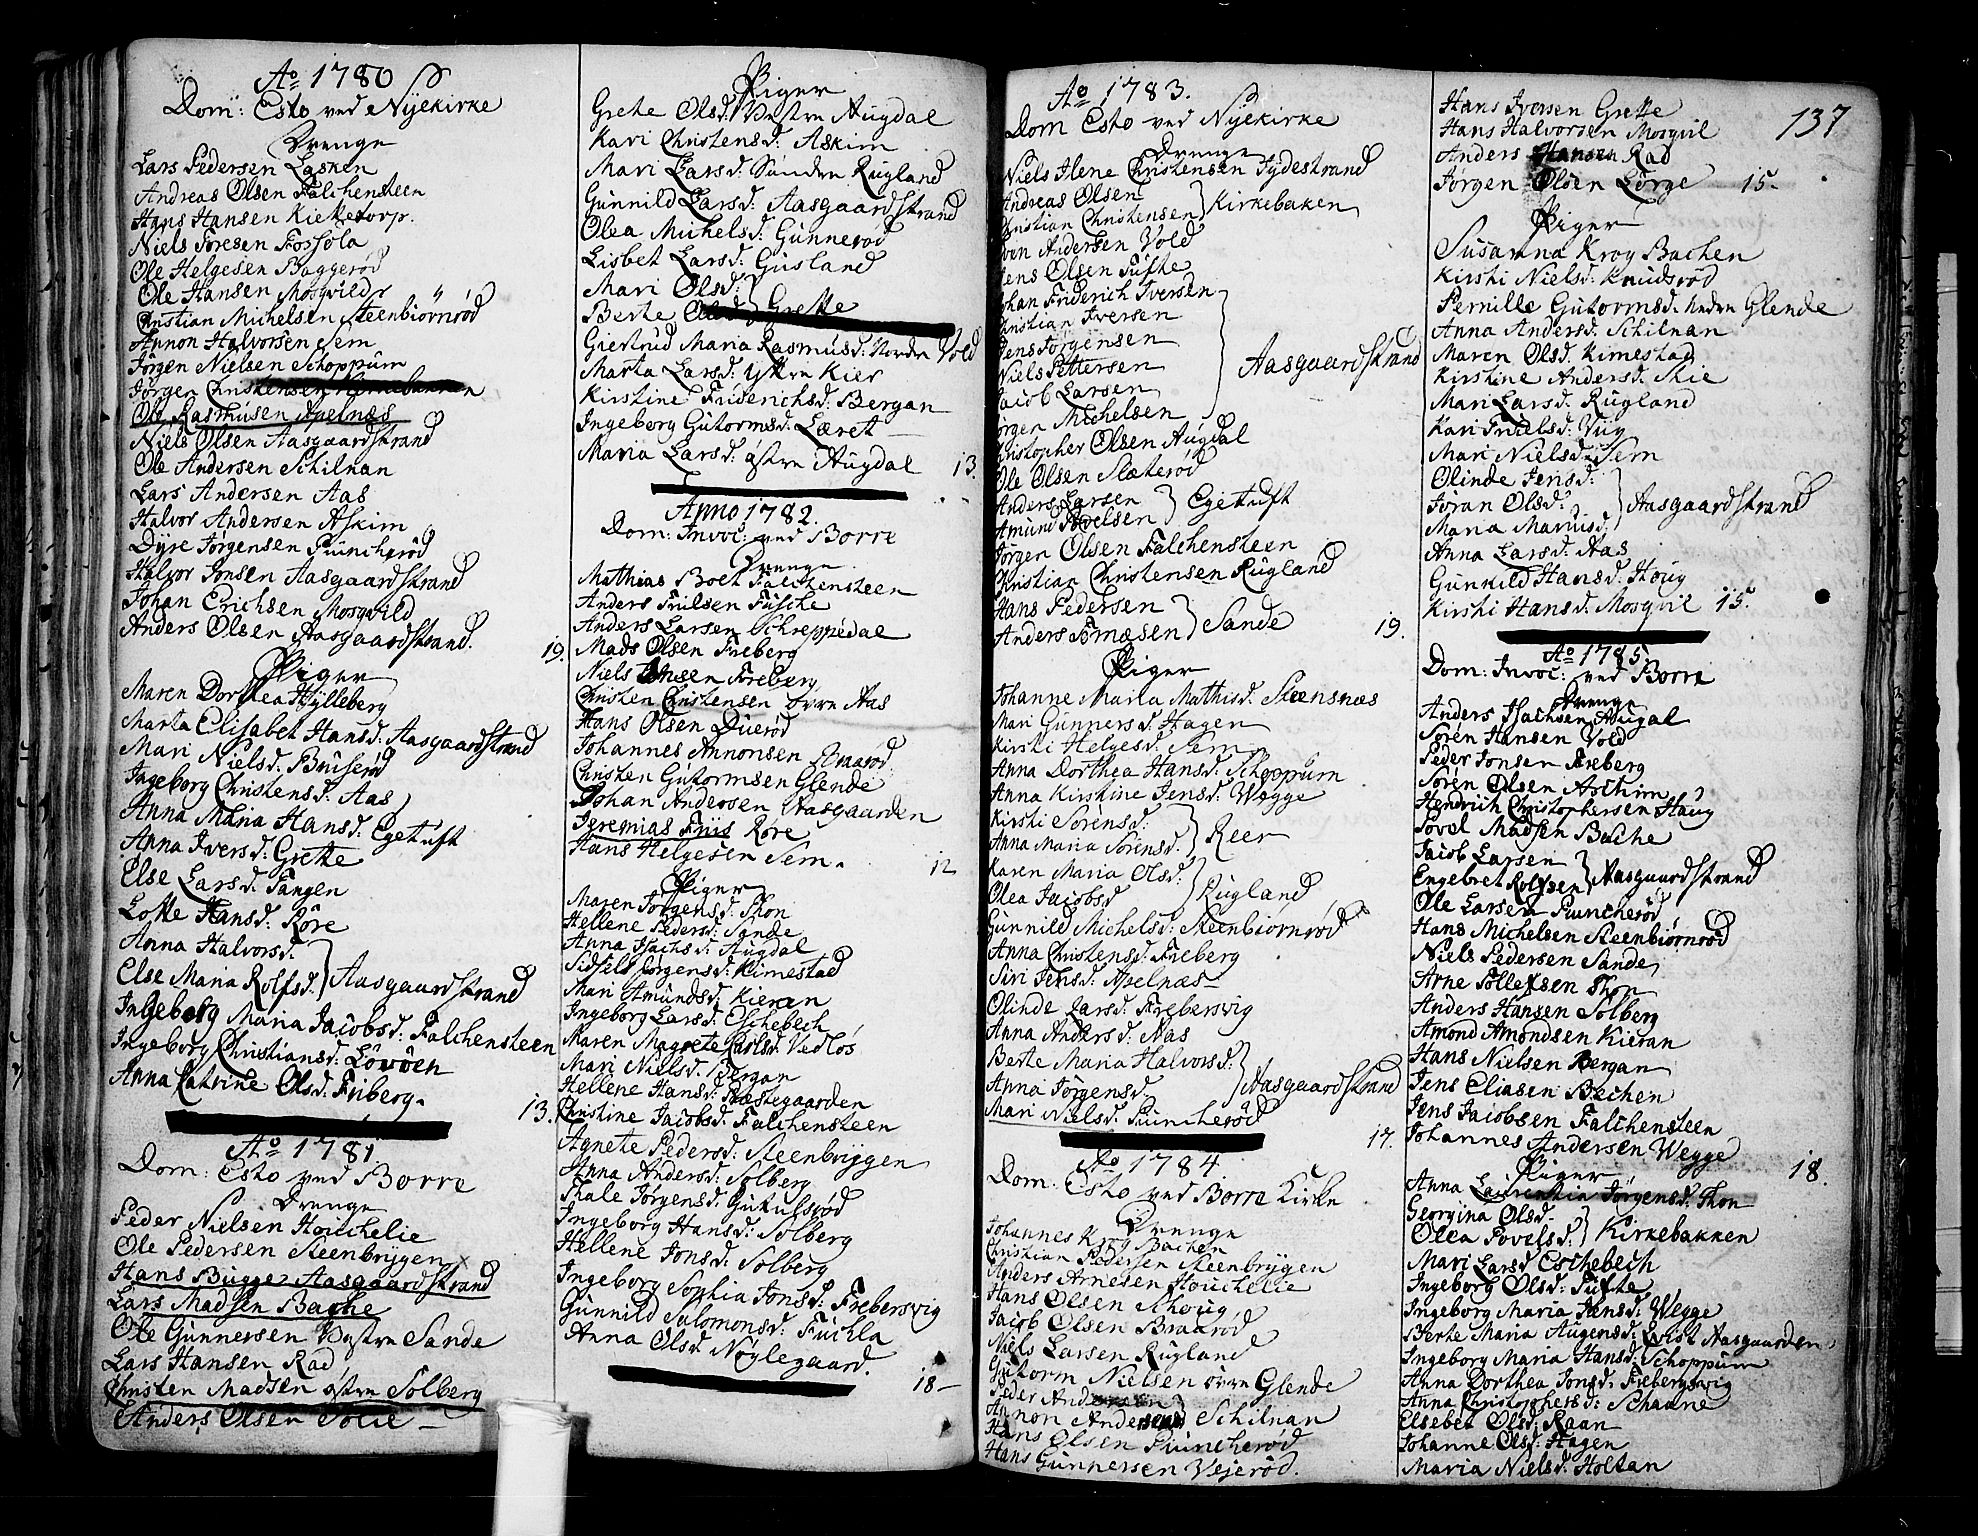 Ao 1780
Dom: Esto ved Nÿekirke
Drenge
Lars Pedersen Lasken
Andreas Olsen Falchensteen
Hans Hansen Kirketorp.
Niels Foresen Fossola
Ole Helgesen Baggerød
Ole Hansen Mosqvild
Christian Michelsen Steenbiørnrød
Annon Halvorsen Sem
Jørgen Nielsen Schoppum
Jørgen Christensen
Ole Rasmusen Apelnæs
Niels Olsen Aasgaardstrand
Ole Andersen Schilnan
Lars Andersen Aas
Halvor Andersen Askim
Dÿre Jørgensen Puncherød
Halvor Jonsen Aasgaardstrand
Johan Erichsen Mosqvild
Anders Olsen Aasgaardstrand. 19.
Piger
Maren Dorthea Hÿlleberg
Marta Elisabet Hansd: Aasgaardstrand
Mari Nielsd: Bruserød
Ingeborg Christensd: Aas
Anna Maria Hansd: Egetuft
Anna Iversd: Grette
Else Larsd. Tangen
Lotte Hansd: Røre
Anna Halvorsd.
Else Maria Rolfsd. } Aasgaardstrand
Ingeborg Maria Jacobsd: Falchensteen
Ingeborg Christiansd: Løvøen
Anna Katrine Olsd: Friberg. 13.
Ao 1781.
Dom: Esto ved Borre
Drenge
Peder Nielsen Houchelie
Ole Pedersen Steenbrÿgen
Hans Bugge Aasgaardstrand
Lars Madsen Bache
Ole Gunnersen Vestre Sande
Lars Hansen Rad
Christen Madsen østre Solberg
Anders Olsen Solie
Piger
Grethe Olsd: Vestre Augdal
Kari Christensd: Askim
Mari Larsd: Søndre Rugland
Gunnild Larsd: Aasgaardstrand
Olea Michelsd: Gunnerød
Lisbet Larsd: Gusland
Mari Olsd:
Berte Olsd } Grette
Giertrud Maria Rasmusd: Nordre Vold
Marta Larsd: ÿttre Kier
Kirstine Friderichsd: Bergan
Ingeborg Gutormsd: Læret
Maria Larsd: østre Augdal 13.
Anno 1782.
Dom: Invoc: ved Borre
Drenge
Mathias Boet Falchensteen
Anders Frilsen Fusche
Anders Larsen Schreppedal
Mads Olsen Freberg
Niels Jonsen Freberg
Christen Christensen øvre Aas
Hans Olsen Duerød
Johannes Annonsen
Christen Gutormsen Glende
Johan Andersen Aasgaarden
Jeremias Friis Røre
Hans Helgesen Sem. 12
Piger
Maren Jørgensd: Thon
Hellene Pedersd: Sande
Anna Isachsd: Augdal
Sidsels Jørgensd: Kimestad
Mari Amundsd: Kieran
Ingeborg Larsd: Eschebech
Maren Magrete Carlsd: Vedløs
Mari Nielsd: Bergan
Hellene Hansd: Præstegaarden
Christine Jacobsd: Falchensteen
Agnete Pedersd: Steenbrÿgen
Anna Andersd: Solberg
Thale Jørgensd: Gutulsrød
Ingeborg Hansd: Solberg
Hellene Jonsd: Solberg
Ingeborg Sophia Jonsd: Frebersvig
Gunnild Salomonsd: Fuchla
Anna Olsd Nøglegaard. 18-
Ao 1783.
Dom Esto ved Nÿekirke
Drenge
Niels Ilene Christensen Tydestrand
Andreas Olsen
Christian Christensen } Kirkebaken
Even Andersen Vold
Jens Olsen Tufte
Johan Friderich Iversen
Christian Iversen
Jens Jørgensen
Niels Pettersen
Jacob Larsen
Jørgen Michelsen } Aasgaardstrand
Christopher Olsen Augdal
Ole Olsen Sleterød
Anders Larsen
Amund Povelsen } Egetuft
Jørgen Olsen Falchensteen
Christian Christensen Rugland
Hans Pedersen
Anders Tomæsen } Sande 19.
Piger
Johanne Maria Mathisd: Steensnæs
Mari Gunnersd: Hagen
Kirsti Helgesd: Sem
Anna Dorthea Hansd: Schoppum
Anna Kirstine Jensd: Wegge
Kirsti Sørensd:
Anna Maria Sørensd: } Reer
Karen Maria Olsd:
Olea Jacobsd } Rugland
Gunnild Michelsd: Steenbiørnrød
Anna Christensd: Freberg
Siri Jensd: Apelnæs
Olinde Larsd: Frebersvig
Anna Andersd: Aas
Berte Maria Halvorsd:
Anna Jørgensd: } Aasgaardstrand
Mari Nielsd: Puncherød 17.
Ao 1784.
Dom: Esto ved Borre Kirke
Drenge
Johannes Krog Bachen
Christian Pedersen Steenbrÿgen
Anders Arnesen Houchelie
Hans Olsen Schoug
Jacob Olsen Braarød
Niels Larsen Rugland
Gutorm Nielsen øvre Glende
Peder Andersen
Annon Andersen } Schilnan
Hans Olsen Puncherød
Hans Gunnersen Vejerød.
137
Hans Iversen Grette
Hans Halvorsen Mosqvil
Anders Hansen Rad
Jørgen Olsen Lørge 15.
Piger
Susanna Krog Bachen
Kirsti Nielsd: Knudsrød
Pernille Gutormsd: nedre Glende
Anna Andersd: Schilnan
Maren Olsd. Kimestad
Kirstine Andersd: Skie
Mari Larsd: Rugland
Kari Frielsd: Vug
Mari Nielsd: Sem
Olinde Jensd:
Jøran Olsd:
Maria Mariusd: } Aasgaardstrand
Anna Larsd: Aas
Gunnild Hansd: Houg
Kirsti Hansd: Mosqvil 15.
Ao 1785.
Dom: Invoc: ved Borre
Drenge
Anders Isachsen Augal
Søren Hansen Vold
Peder Jonsen Freberg
Søren Olsen Aschim
Hendrich Christophersen Haug
Povel Madsen Bache
Jacob Larsen
Engebret Rolfsen } Aasgaardstrand
Ole Larsen Puncherød
Hans Michelsen Steenbiørnrød
Niels Pedersen Sande
Arne Tollefsen Thon
Anders Hansen Solberg
Amond Amondsen Kieran
Hans Nielsen Bergan
Jens Eliasen Bechen
Jens Jacobsen Falchensteen
Johannes Andersen Wegge 18.
Piger
Anna Laurentia Jørgensd: Thon
Georgina Olsd.
Olea Povelsd: } Kirkebakken
Mari Larsd Eschebech
Ingeborg Olsd: Tufte
Ingeborg Maria Jensd: Wegge
Berte Maria Augensd: Qvist Aasgaarden
Ingeborg Maria Hansd: Schoppum
Anna Dorthea Jonsd: Frebergsvig
Anna Christophersd: Schaane
Elsebet Olsd: Raan
Johanne Olsd: Hagen
Maria Nielsd: Holtan